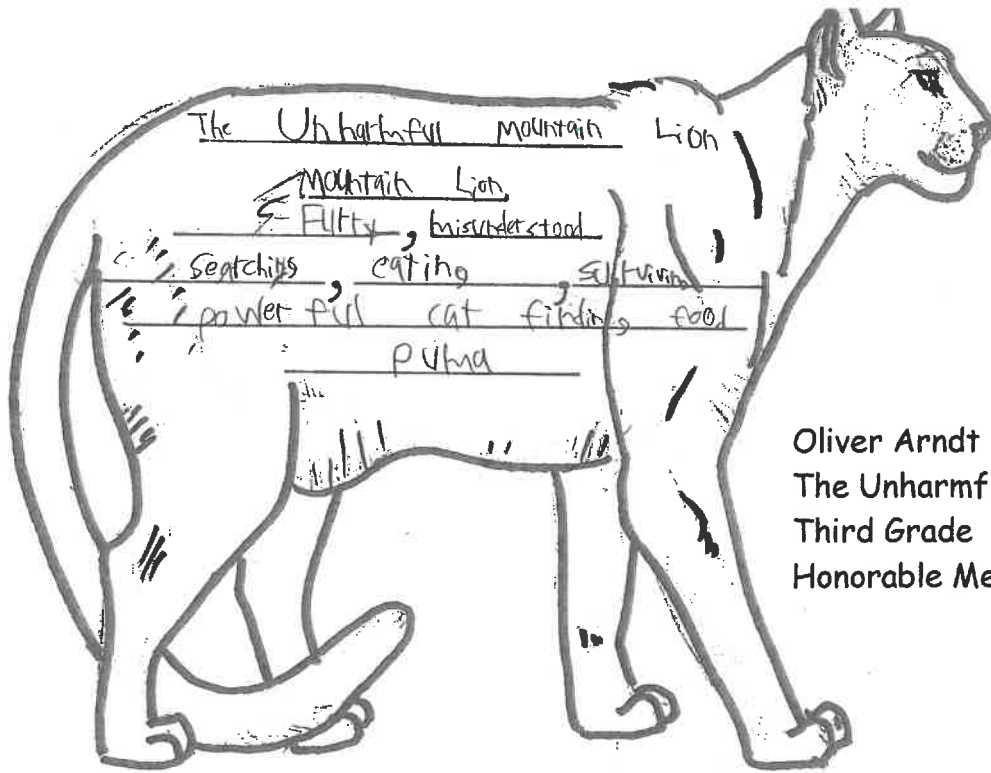 The Unharmful Mountain Lion
Mountain Lion
Furry, misunderstood
searching, eating, surviving
powerful cat finding food
puma
Oliver Arndt
The Unharmf
Third Grade
Honorable Me